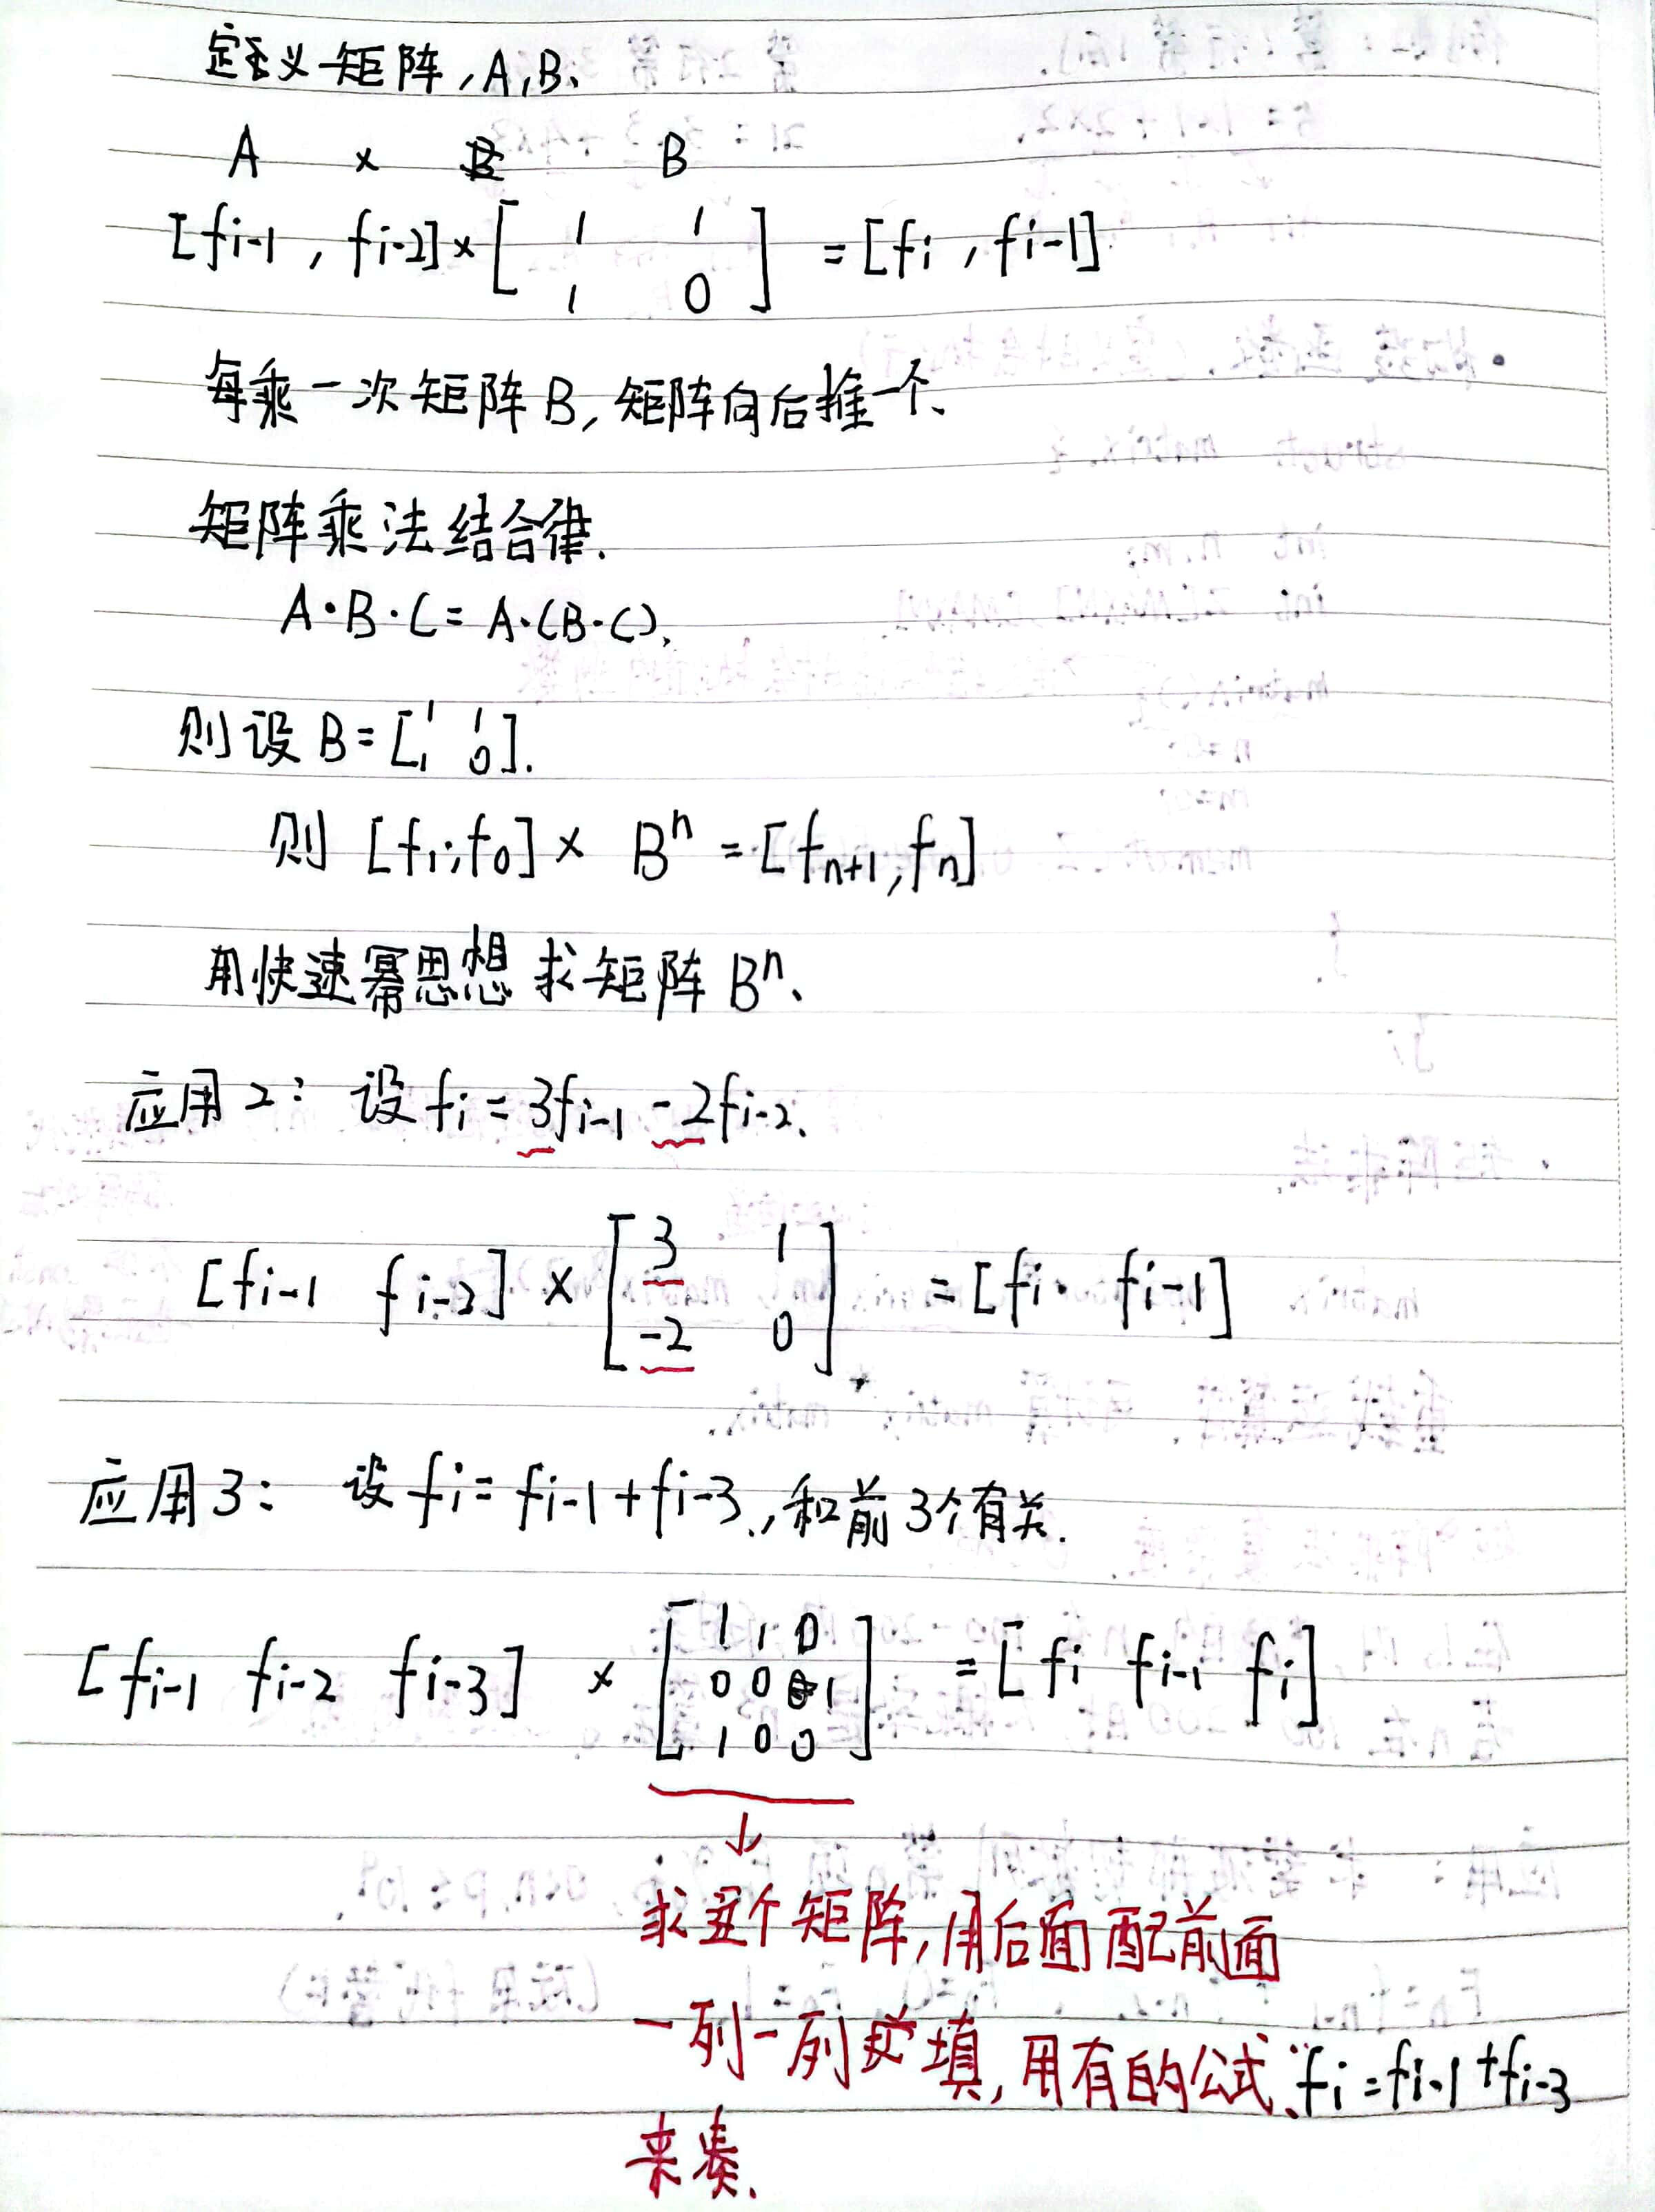 定义矩阵,A,B、
A × B
[fi-1 , fi-2] × [ 1 1 ; 1 0 ] = [fi , fi-1]
每乘一次矩阵B,矩阵向后推一个、
矩阵乘法结合律.
A·B·C = A·(B·C),
则设 B = [ 1 1 ; 1 0 ].
则 [f1,f0] × Bⁿ = [fn+1,fn]
用快速幂思想求矩阵Bⁿ、
应用2: 设 fi = 3fi-1 -2fi-2、
[fi-1 fi-2] × [ 3 1 ; -2 0 ] = [fi· fi-1]
应用3: 设 fi = fi-1 + fi-3,和前3个有关.
[fi-1 fi-2 fi-3] × [ 1 1 0 ; 0 0 1 ; 1 0 0 ] = [fi fi-1 fi]
↓
求这个矩阵,用后面配前面
一列一列填,用有的公式、fi = fi-1 + fi-3
来凑、